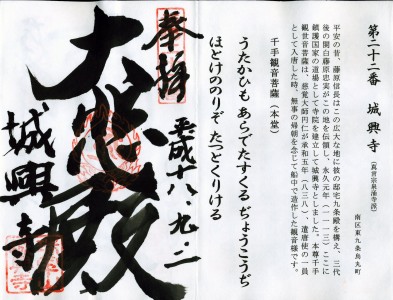 第二十二番 城興寺 (真言宗泉涌寺派)
南区東九条烏丸町
平安の昔、藤原信長はこの広大な地に彼の邸宅九条殿を構え、三代
後の関白藤原忠実がこの地を伝領し、永久元年(一一一三)ここに
鎮護国家の道場として寺院を建立して城興寺としました。本尊千手
観世音菩薩は、慈覚大師円仁が承和五年(八三八)、遣唐使の一員
として入唐した時、無事の帰朝を念じて船中で造作した観音様です。
千手観音菩薩(本堂)
うたかひも あらでたすくる ぢょうこうぢ
ほとけののりぞ たつとくりける
奉拝
平成十八、九、二
大悲殿
城興寺